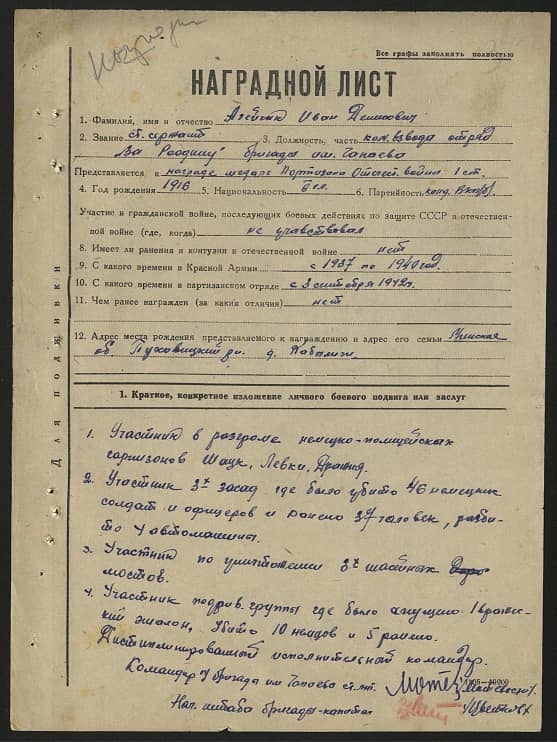 Все графы заполнять полностью
НАГРАДНОЙ ЛИСТ
1. Фамилия, имя и отчество Иван Денисович
2. Звание ст. сержант 3. Должность, часть ком. взвода отряд
"За Родину" бригады им. Чапаева
Представляется к награде медаль Партизана Отечест. войны 1 ст.
4. Год рождения 1916 5. Национальность бел. 6. Партийность канд. ВКП(б).
Участие в гражданской войне, последующих боевых действиях по защите СССР и отечествен-
ной войне (где, когда) не учавствовал
8. Имеет ли ранения и контузии в отечественной войне нет
9. С какого времени в Красной Армии с 1937 по 1940 год.
10. С какого времени в партизанском отряде с 3 сентября 1942г.
11. Чем ранее награжден (за какия отличия) нет
12. Адрес места рождения представляемого к награждению и адрес его семьи Минская
об. Пуховицкий рн. д.
Для подшивки
1. Краткое, конкретное изложение личного боевого подвига или заслуг
1. Участник в разгроме немецко-полицейских
гарнизонов Шацк, Левки,
2. Участник 3х засад где было убито 46 немецких
солдат и офицеров и ранено 37 человек, разби-
то 4 автомашины.
3. Участник по уничтожении 3х шасейных
мостов.
4. Участник подрыв. группы где было спущено 1 вражес-
кий эшалон, убито 10 немцов и 5 ранено.
Дистиплинированный исполнительный командир.
Командир бригады им. Чапаева ст. лт.
Нач. штаба бригады-капитан